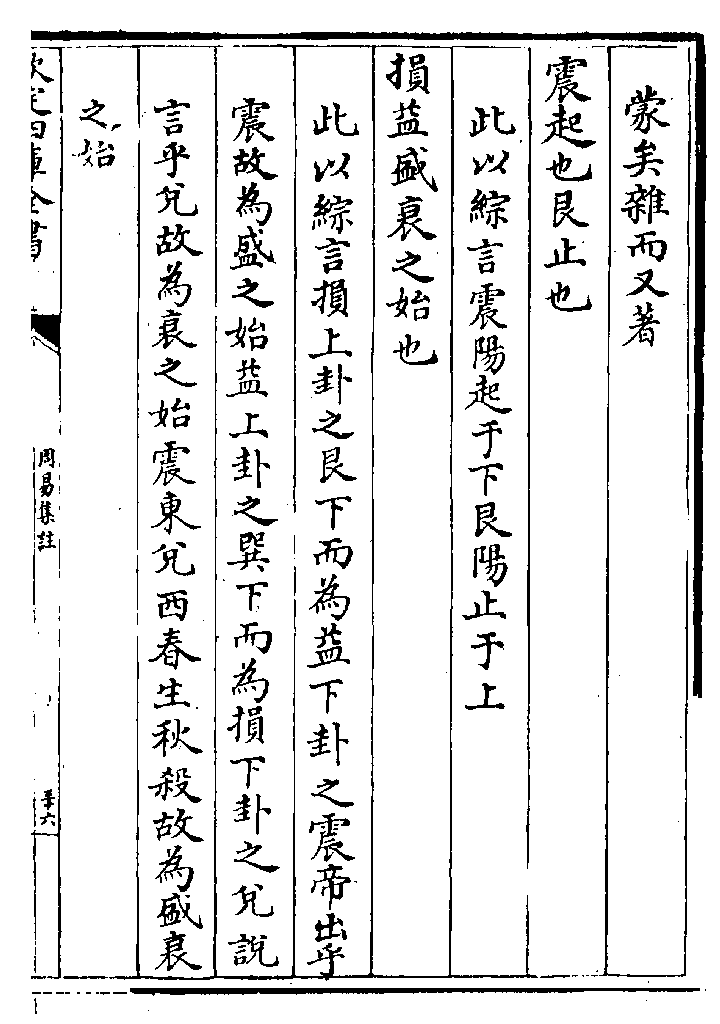 蒙矣雜而又著
震起也艮止也
此以綜言震陽起于下艮陽止于上
損益盛衰之始也
此以綜言損上卦之艮下而為益下卦之震帝出乎
震故為盛之始益上卦之巽下而為損下卦之兌說
言乎兌故為衰之始震東兌西春生秋殺故為盛衰
之始
欽定四庫全書
周易集註
六